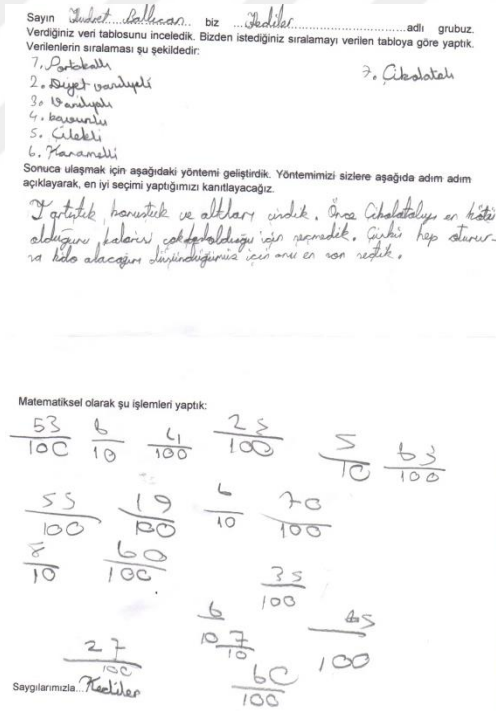 Sayın Kudret Ballıman biz Kediler adlı grubuz.
Verdiğiniz veri tablosunu inceledik. Bizden istediğiniz sıralamayı verilen tabloya göre yaptık.
Verilenlerin sıralaması şu şekildedir:
1. Portakallı
2. Diyet vanilyeli
3. Vanilyalı
4. kavunlu
5. Çilekli
6. Karamelli
7. Çikolatalı
Sonuca ulaşmak için aşağıdaki yöntemi geliştirdik. Yöntemimizi sizlere aşağıda adım adım
açıklayarak, en iyi seçimi yaptığımızı kanıtlayacağız.
Tartıştık, konuştuk ve altları çizdik. Önce Çikolatalıyı en kötü
olduğunu kalorisi çok olduğu için seçmedik. Çünkü hep oturur-
sa kilo alacağını düşündüğümüz için onu en son seçtik.
Matematiksel olarak şu işlemleri yaptık:
53/100 6/10 4/100 25/100 5/10 63/100
55/100 19/100 6/10 70/100
8/10 60/100 35/100
6/10 7/10 65/100
27/100 60/100
Saygılarımızla... Kediler